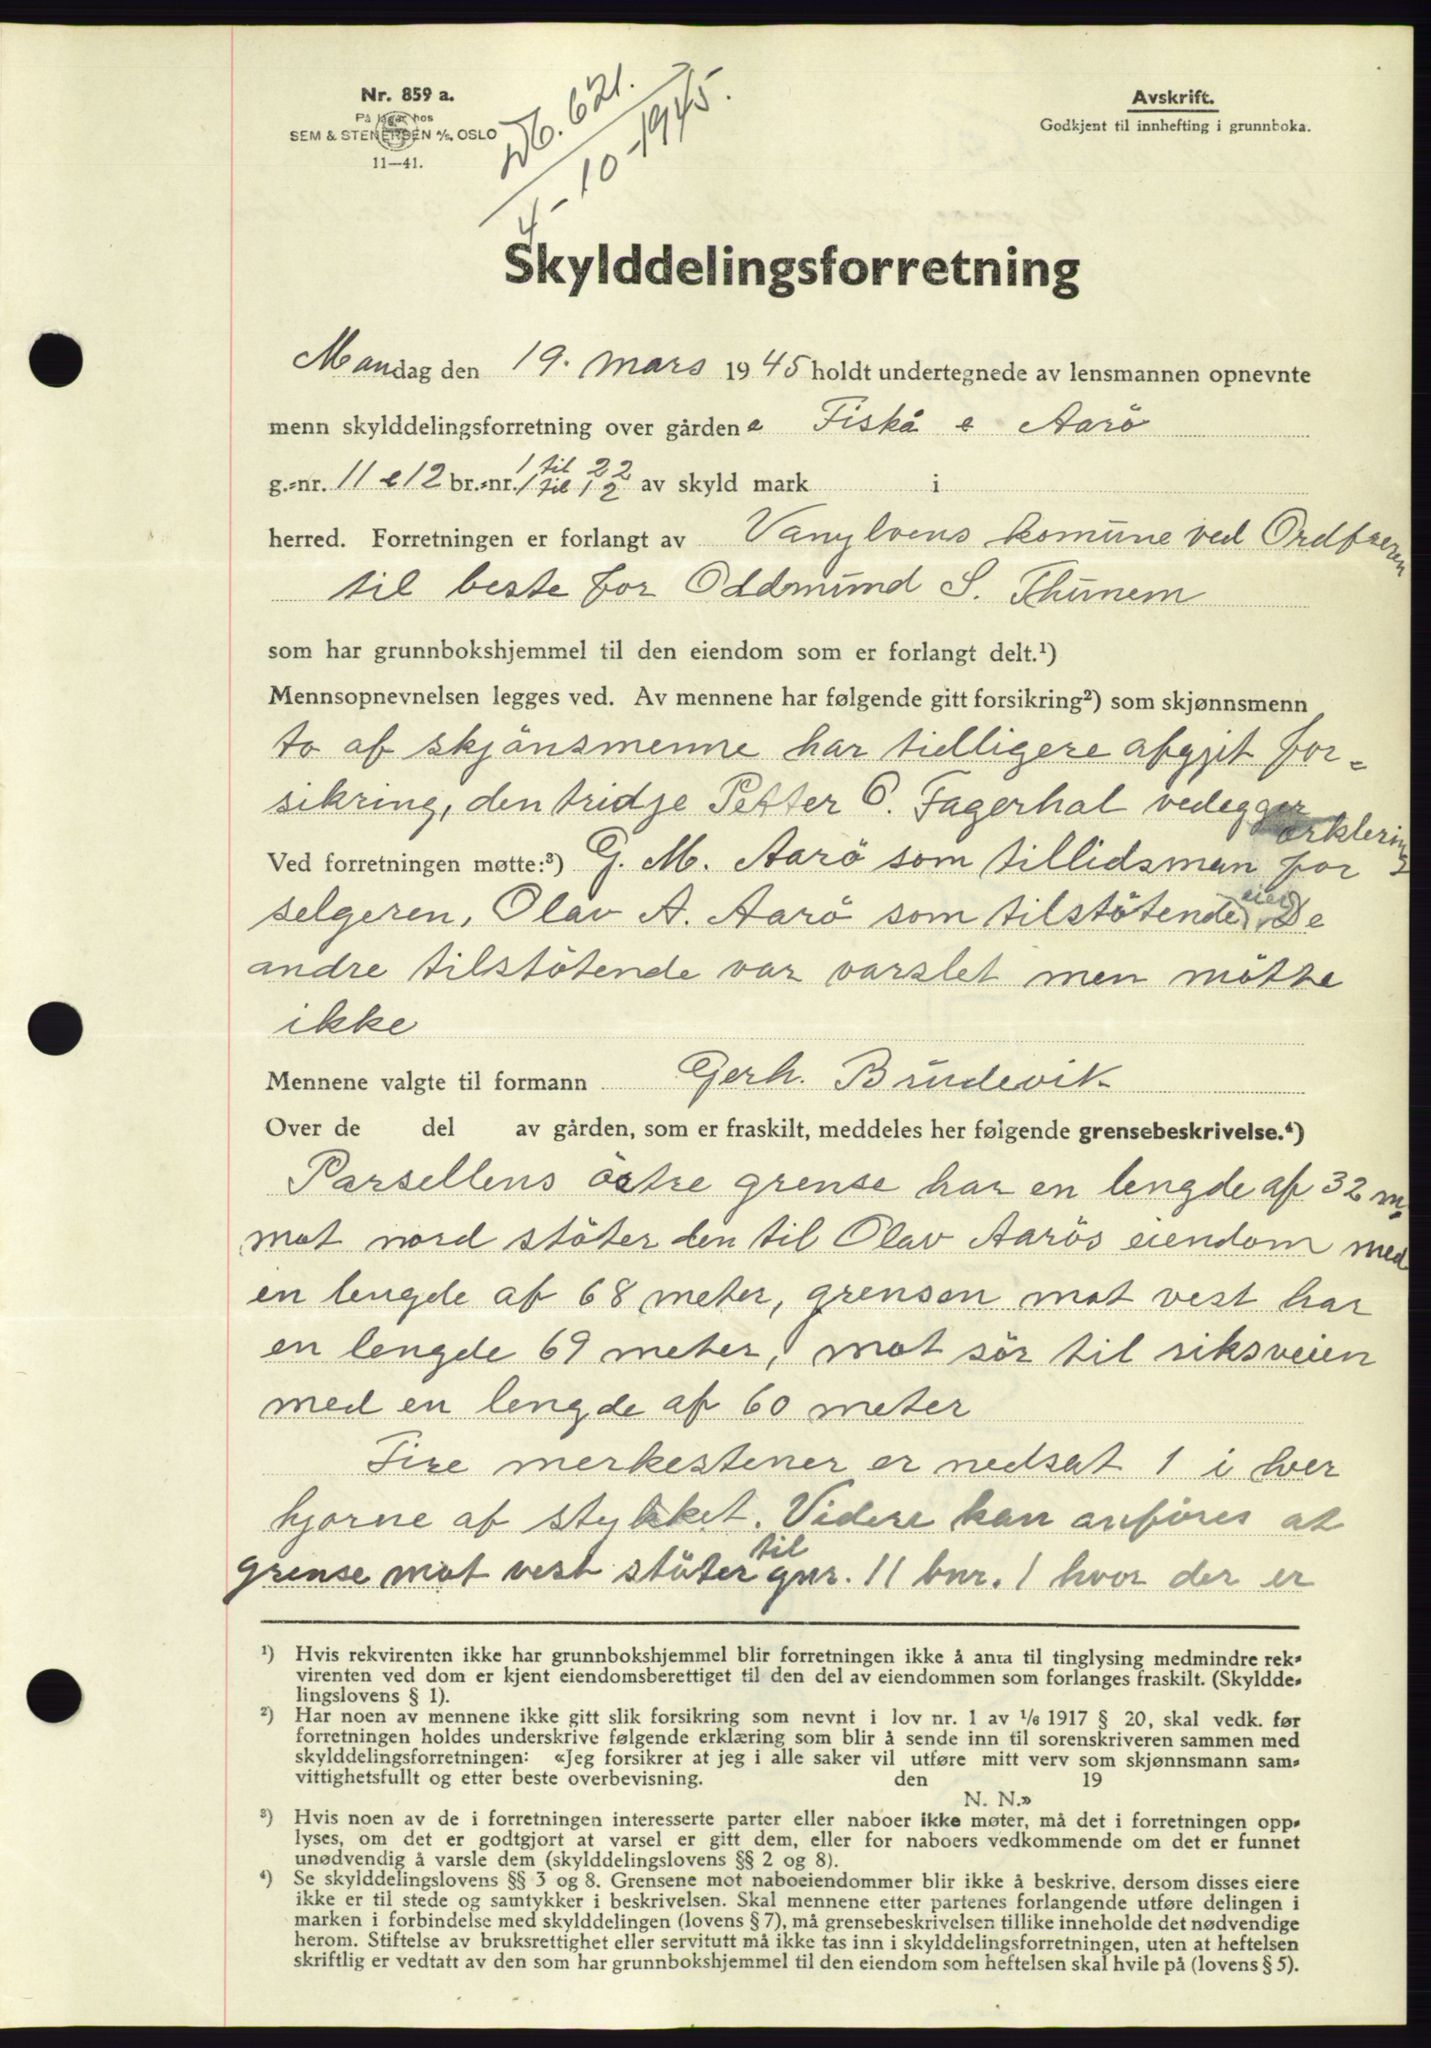 Nr. 859 a.
På lager hos
SEM & STENERSEN A/S, OSLO
11—41.
Db. 621.
4-10-1945.
Avskrift.
Godkjent til innhefting i grunnboka.
Skylddelingsforretning
Mandag den 19. mars 1945 holdt undertegnede av lensmannen opnevnte
menn skylddelingsforretning over gårdene Fiskå e Aarö
g.=nr. 11 e 12 br.=nr. 1 til 22 1 til 12 av skyld mark i
herred. Forretningen er forlangt av Vanylvens komune ved Ordføreren
til beste for Oddmund S. Thunem
som har grunnbokshjemmel til den eiendom som er forlangt delt.¹)
Mennsopnevnelsen legges ved. Av mennene har følgende gitt forsikring²) som skjønnsmenn
to af skjönsmenne har tidligere afgjit for=
sikring, den tridje Petter O. Fagerhal vedegger
erklering
Ved forretningen møtte:³) G. M. Aarö som tillidsman for
selgeren, Olav A. Aarö som tilstötende eier De
andre tilstötende var varslet men mötte
ikke
Mennene valgte til formann Gerh. Brudevik
Over de del av gården, som er fraskilt, meddeles her følgende grensebeskrivelse.⁴)
Parsellens östre grense har en lengde af 32 m.
mot nord stöter den til Olav Aarös eiendom med
en lengde af 68 meter, grensen mot vest har
en lengde 69 meter, mot sör til riksveien
med en lengde af 60 meter
Fire merkestener er nedsat 1 i hver
hjorne af stykket. Videre kan anföres at
grense mot vest stöter til gnr. 11 bnr. 1 hvor der er
¹) Hvis rekvirenten ikke har grunnbokshjemmel blir forretningen ikke å anta til tinglysing medmindre rek=
virenten ved dom er kjent eiendomsberettiget til den del av eiendommen som forlanges fraskilt. (Skyldde=
lingslovens § 1).
²) Har noen av mennene ikke gitt slik forsikring som nevnt i lov nr. 1 av 1/6 1917 § 20, skal vedk. før
forretningen holdes underskrive følgende erklæring som blir å sende inn til sorenskriveren sammen med
skylddelingsforretningen: «Jeg forsikrer at jeg i alle saker vil utføre mitt verv som skjønnsmann sam=
vittighetsfullt og etter beste overbevisning. den 19
N. N.»
³) Hvis noen av de i forretningen interesserte parter eller naboer ikke møter, må det i forretningen opp=
lyses, om det er godtgjort at varsel er gitt dem, eller for naboers vedkommende om det er funnet
unødvendig å varsle dem (skylddelingslovens §§ 2 og 8).
⁴) Se skylddelingslovens §§ 3 og 8. Grensene mot naboeiendommer blir ikke å beskrive, dersom disses eiere
ikke er til stede og samtykker i beskrivelsen. Skal mennene etter partenes forlangende utføre delingen i
marken i forbindelse med skylddelingen (lovens § 7), må grensebeskrivelsen tillike inneholde det nødvendige
herom. Stiftelse av bruksrettighet eller servitutt må ikke tas inn i skylddelingsforretningen, uten at heftelsen
skriftlig er vedtatt av den som har grunnbokshjemmel til den eiendom som heftelsen skal hvile på (lovens § 5).